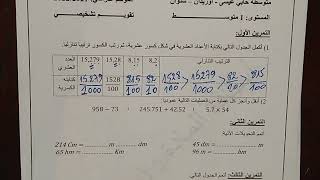 متوسطة حابي عيسى - اوريسان - تلمسان
المستوى: 1 متوسط
تقويم تشخيصي
التمرين الأول:
1) أكمل الجدول التالي بكتابة الأعداد العشرية في شكل كسور عشرية، ثم رتب الكسور ترتيبا تنازليا.
الترتيب التنازلي 8,2 8,15 15,28 15,279 العدد العشري
1528/100 > 15279/1000 > 82/10 > 815/100 82/10 815/100 1528/100 15279/1000 كتابته الكسرية
2) أنقل وأنجز كل عملية من العمليات التالية عموديا:
958 – 73 ، 245.751 + 42.52 ، 5.7 × 54
التمرين الثاني:
أتمم التحويلات الآتية
214 Cm = Dm 45 dm = m
65 hm = Km 96 m = hm
التمرين الثالث: